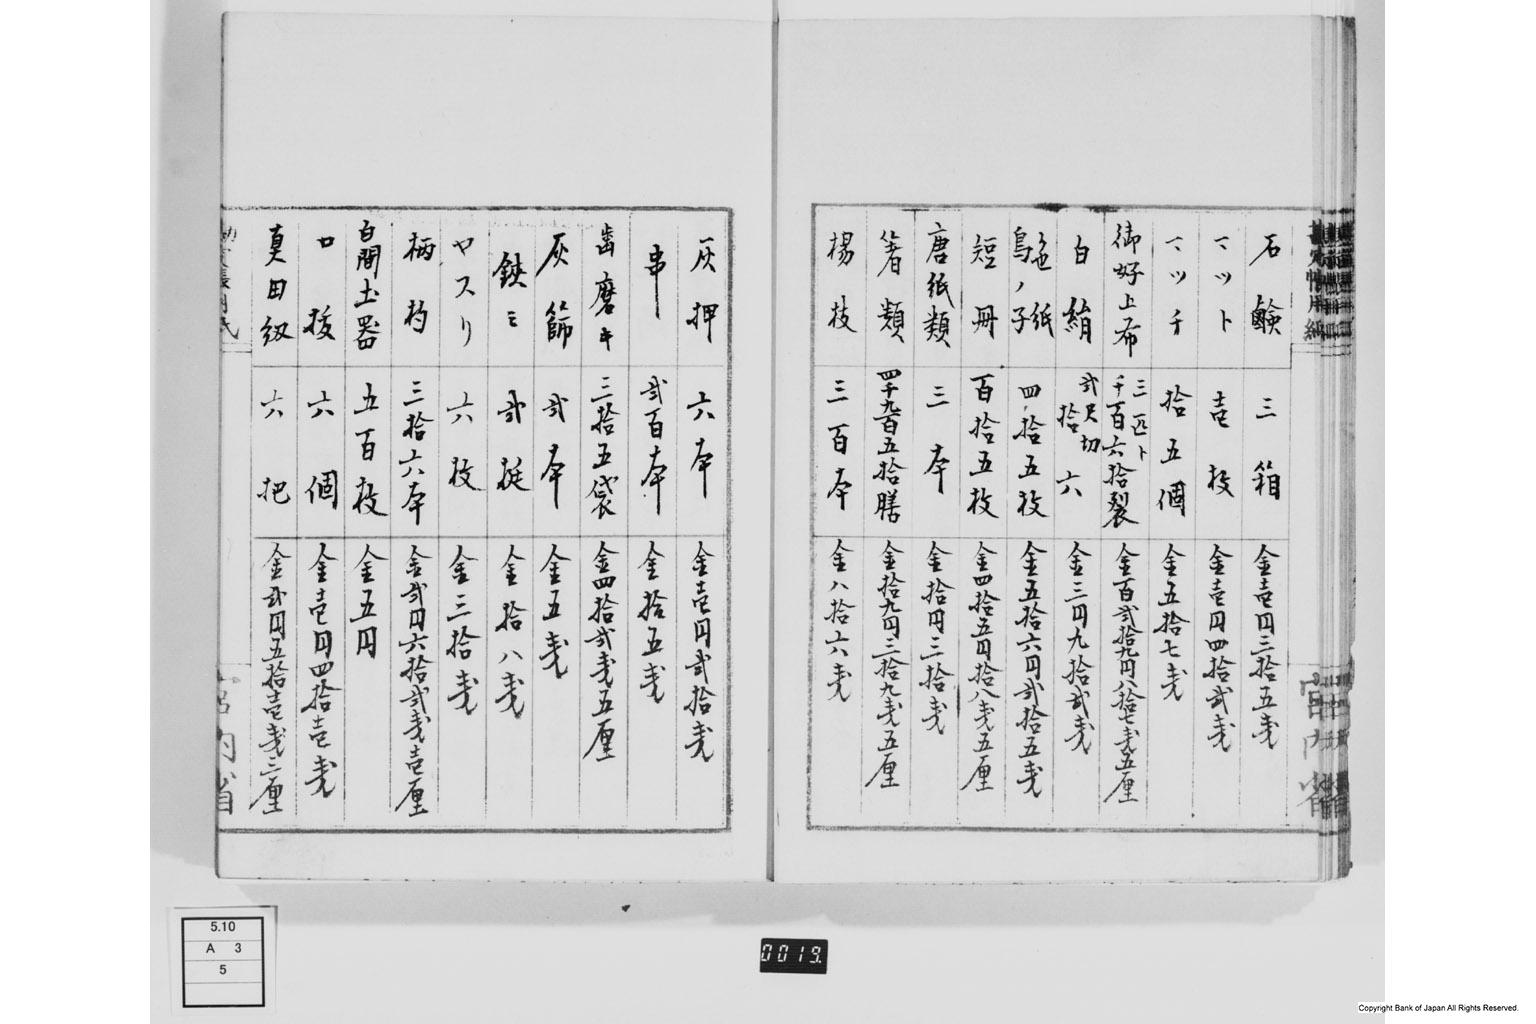 石鹸 三箱 金壱円三拾五銭
マット 壱枚 金壱円四拾弐銭
マッチ 拾五個 金五拾七銭
御好上布 三匹ト千百六拾裂 金百弐拾九円八拾七銭五厘
白絹 弐尺切拾六 金三円九拾弐銭
鳥ノ子色紙 四拾五枚 金五拾六円弐拾五銭
短冊 百拾五枚 金四拾五円拾八銭五厘
唐紙類 三本 金拾円三拾銭
箸類 四千九百五拾膳 金拾九円三拾九銭五厘
楊枝 三百本 金八拾六銭
灰押 六本 金壱円弐拾銭
串 弐百本 金拾五銭
歯磨キ 三拾五袋 金四拾弐銭五厘
灰篩 弐本 金五銭
鋏ミ 弐挺 金拾八銭
ヤスリ 六枚 金三拾銭
柄杓 三拾六本 金弐円六拾弐銭壱厘
白間土器 五百枚 金五円
口 六個 金壱円四拾壱銭
真田紐 六把 金弐円五拾壱銭三厘
宮内省
宮内省
5.10
A 3
5
0019
Copyright Bank of Japan All Rights Reserved.